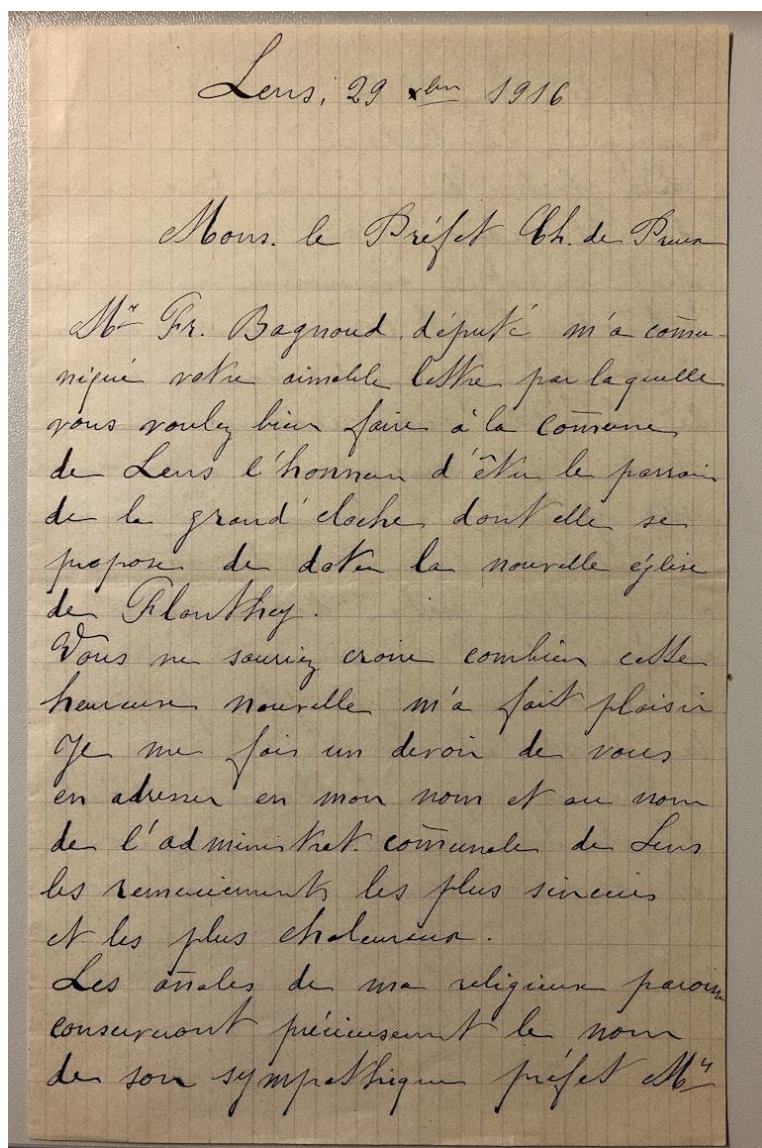 Lens, 29 xbre 1916
Mons. le Préfet Ch. de Preux
Mr Fr. Bagnoud, député m'a com̄u-
niqué votre aimable lettre par laquelle
vous voulez bien faire à la com̄une
de Lens l'honneur d'être le parrain
de la grand' cloche dont elle se
propose de doter la nouvelle église
de Flanthey.
Vous ne sauriez croire combien cette
heureuse nouvelle m'a fait plaisir
Je me fais un devoir de vous
en adresser en mon nom et au nom
de l'administrat. com̄unale de Lens
les remerciements les plus sincères
et les plus chaleureux.
Les an̄ales de ma religieuse paroisse
conserveront précieusement le nom
de son sympathique préfet Mr